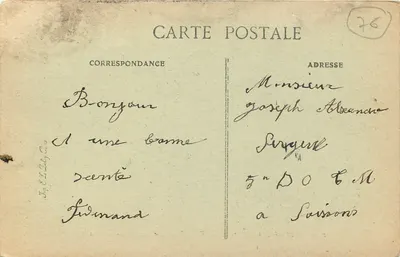 76
CARTE POSTALE
CORRESPONDANCE
Bonjour
et une bonne
santé
Ferdinand
ADRESSE
Monsieur
Joseph Alexandre
Sergent
D O T M
a Soissons